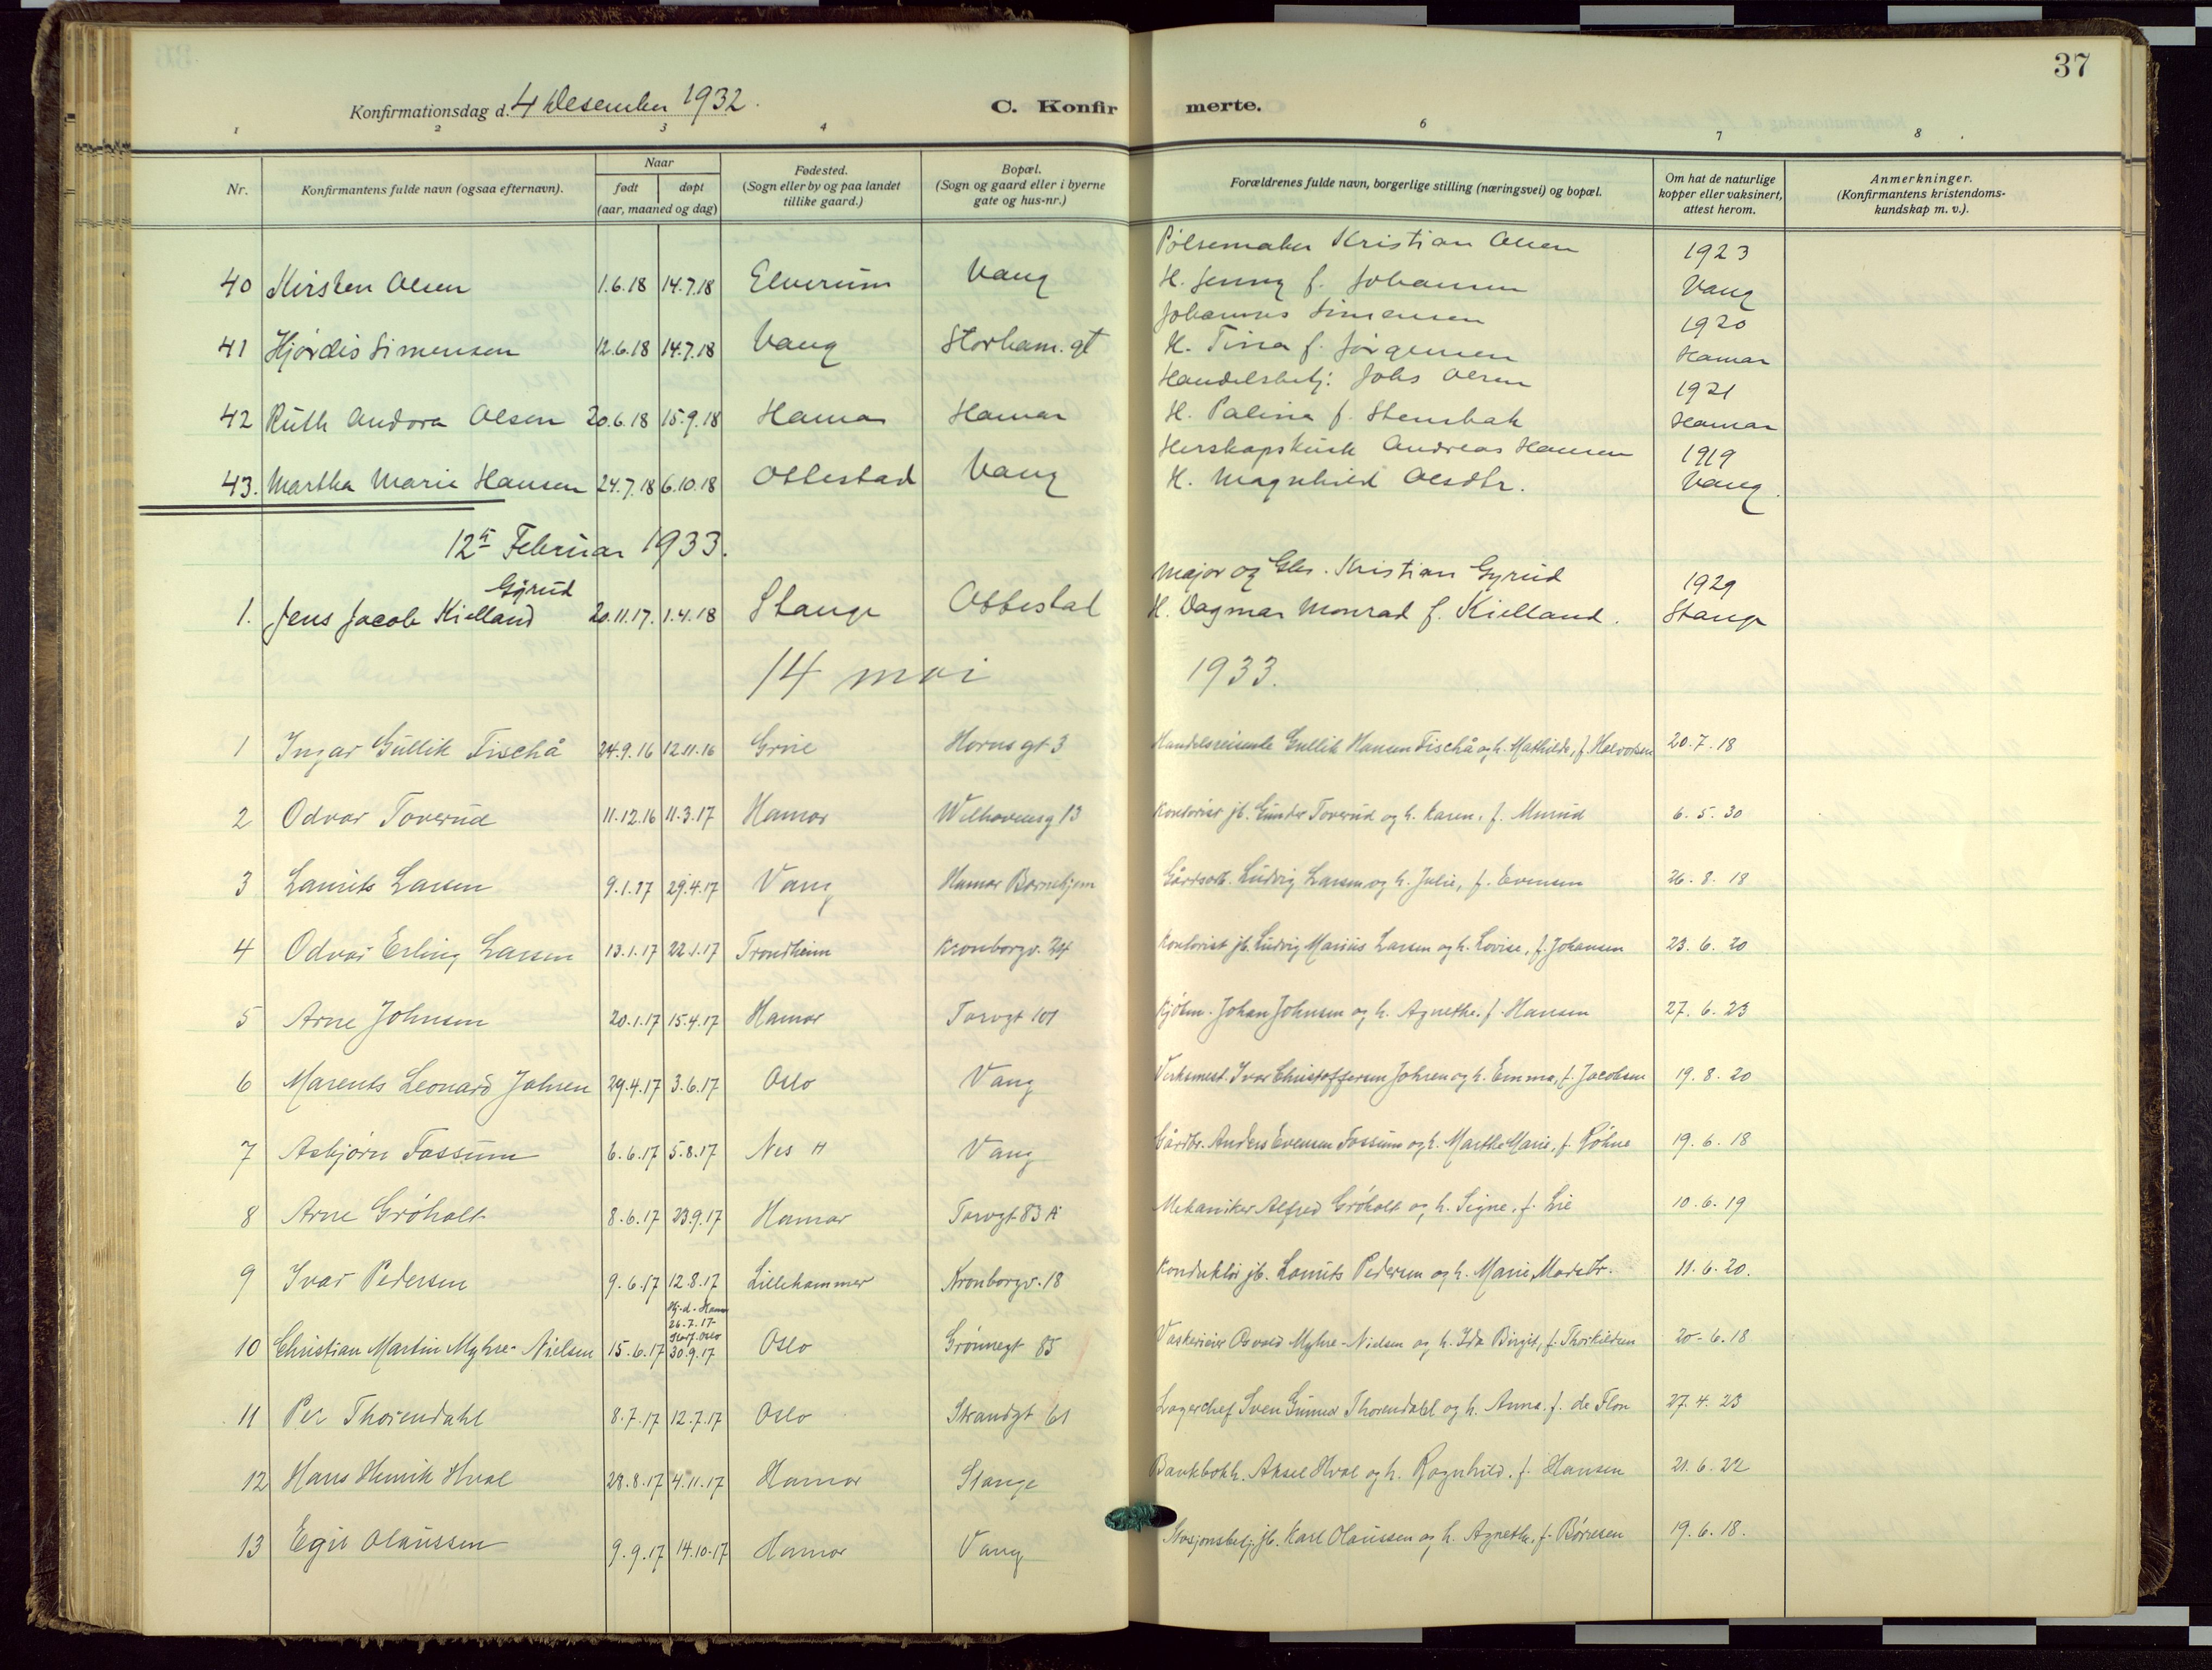 37
Konfirmationsdag d. 4 Desember 1932.
C. Konfirmerte.
1 2 3 4 6 7 8
Nr. | Konfirmantens fulde navn (ogsaa efternavn). | Naar født | døpt (aar, maaned og dag) | Fødested. (Sogn eller by og paa landet tillike gaard.) | Bopæl. (Sogn og gaard eller i byerne gate og hus-nr.) | Forældrenes fulde navn, borgerlige stilling (næringsvei) og bopæl. | Om hat de naturlige kopper eller vaksinert, attest herom. | Anmerkninger. (Konfirmantens kristendomskundskap m. v.).
Pølsemaker Kristian Olsen 1923
40 Kirsten Olsen 1.6.18 14.7.18 Elverum Vang H. Jenny f. Johansen Vang
Johannes Simensen 1920
41 Hjørdis Simensen 12.6.18 14.7.18 Vang Storham. gt H. Tina f. Jørgensen Hamar
Handelsbetj: Johs Olsen 1921
42 Ruth Andora Olsen 20.6.18 15.9.18 Hamar Hamar H. Palina f. Stensbak Hamar
Herskapskusk Andreas Hansen 1919
43. Martha Marie Hansen 24.7.18 6.10.18 Ottestad Vang H. Magnhild Olsdtr. Vang.
12te Februar 1933.
Gyrud Major og Gbr. Kristian Gyrud 1929
1. Jens Jacob Kielland 20.11.17. 1.4.18 Stange Ottestad H. Dagmar Monrad f. Kielland. Stange
14 mai 1933.
1 Ingar Gullik Fischå 24.9.16 12.11.16 Grue Hornsgt 3 Handelsreisende Gullik Hansen Fischå og h. Mathilde, f. Halvorsen 20.7.18
2 Odvar Toverud 11.12.16 11.3.17 Hamar Wilhovensg 13 Kontorist jb. Gunder Toverud og h. Karen, f. Murud 6.5.30
3 Laurits Larsen 9.1.17 29.4.17 Vang Hamar Barnehjem Gårdsarb. Ludvig Larsen og h. Julie, f. Evensen 26.8.18
4 Odvar Erling Larsen 13.1.17 22.1.17 Trondheim Kronborgv. 24 Kontorist jb. Ludvig Marius Larsen og h. Lovise, f. Johansen 23.6.20
5 Arne Johnsen 20.1.17 15.4.17 Hamar Torvgt 101 Kjøbm. Johan Johnsen og h. Agnethe, f. Hansen 27.6.23
6 Marents Leonard Johsen 29.4.17 3.6.17 Oslo Vang Verksmest. Ivar Christoffersen Johsen og h. Emma, f. Jacobsen 19.8.20
7 Asbjørn Fossum 6.6.17 5.8.17 Nes H Vang Gårdbr. Anders Evensen Fossum og h. Marthe Marie, f. Røhne 19.6.18
8 Arne Grøholt 8.6.17 23.9.17 Hamar Torvgt 83 A Mekaniker Alfred Grøholt og h. Signe, f. Lie 10.6.19
9 Ivar Pedersen 9.6.17 12.8.17 Lillehammer Kronborgv. 18 Konduktør jb. Laurits Pedersen og h. Marie Madsdtr. 11.6.20.
Hj.d. Hamar
26.7.17
Oslo
10 Christian Martin Myhre-Nielsen 15.6.17 30.9.17 Oslo Grønnegt 85 Vaskerieier Osvald Myhre-Nielsen og h. Ida Birgit, f. Thorkildsen 20-6.18
11 Per Thorendahl 8.7.17 12.7.17 Oslo Strandgt 61 Lagerchef Sven Gunnar Thorendahl og h. Anna, f. de Flon 27.4.23
12 Hans Henrik Hval 28.8.17 4.11.17 Hamar Stange Bankbokh. Aksel Hval og h. Ragnhild, f. Hansen 21.6.22
13 Egil Olaussen 9.9.17 14.10.17 Hamar Vang Stasjonsbetj. jb. Karl Olaussen og h. Agnethe, f. Børresen 19.6.18.